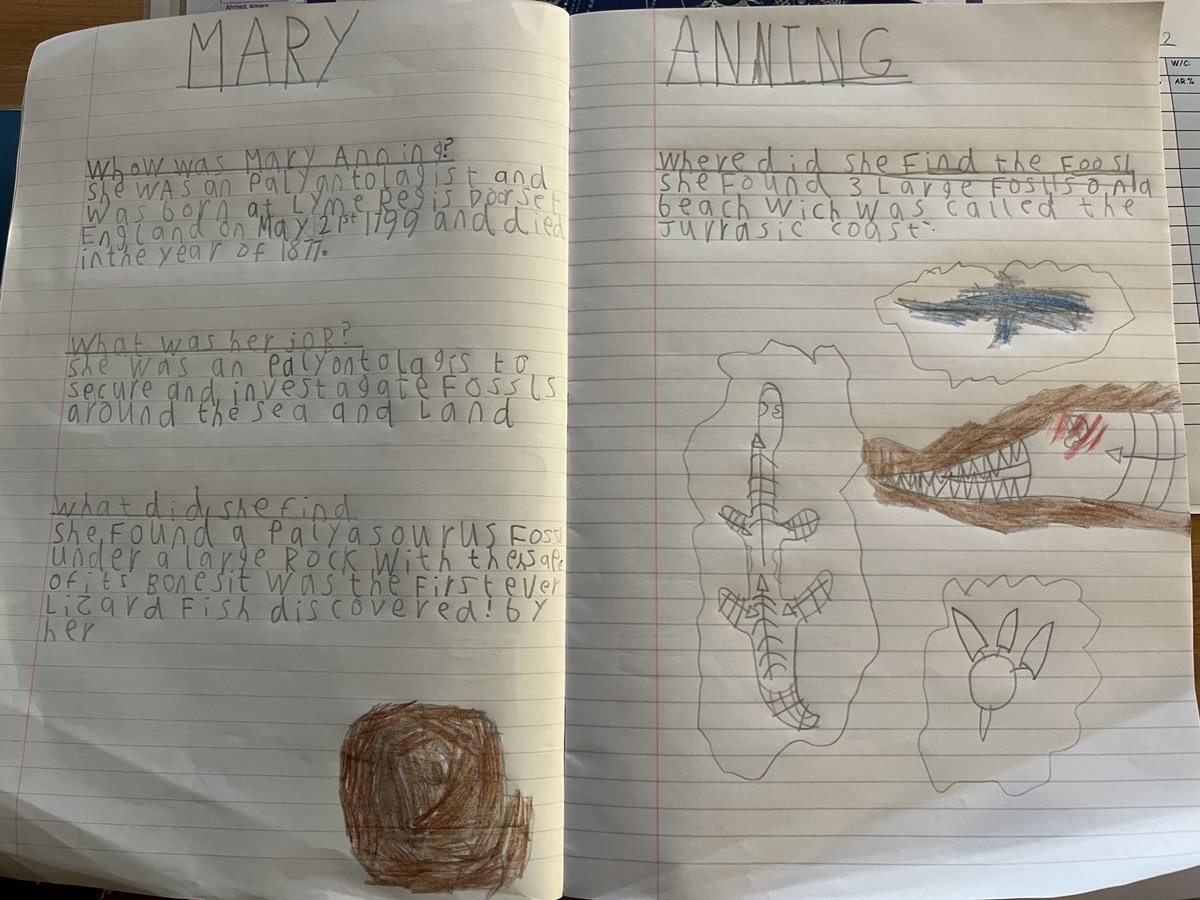 Ahmed, Amara
MARY
Whow was Mary Anning?
she was an Palyantolagist and
was born at Lyme Regis Dorset
England on May 21st 1799 and died
in the year of 1877.
What was her joB?
she was an palyontolagis to
secure and investaggate Fossls
around the sea and Land
What did she find
She Found a Palyasourus Foss
under a large Rock with the
of its Bones it was the First ever
Lizard Fish discovered! by
her
ANNING
where did she Find the Foosl
she Found 3 Large Fossils on a
beach wich was called the
Jurrasic coast.
2
W/C:
AR %